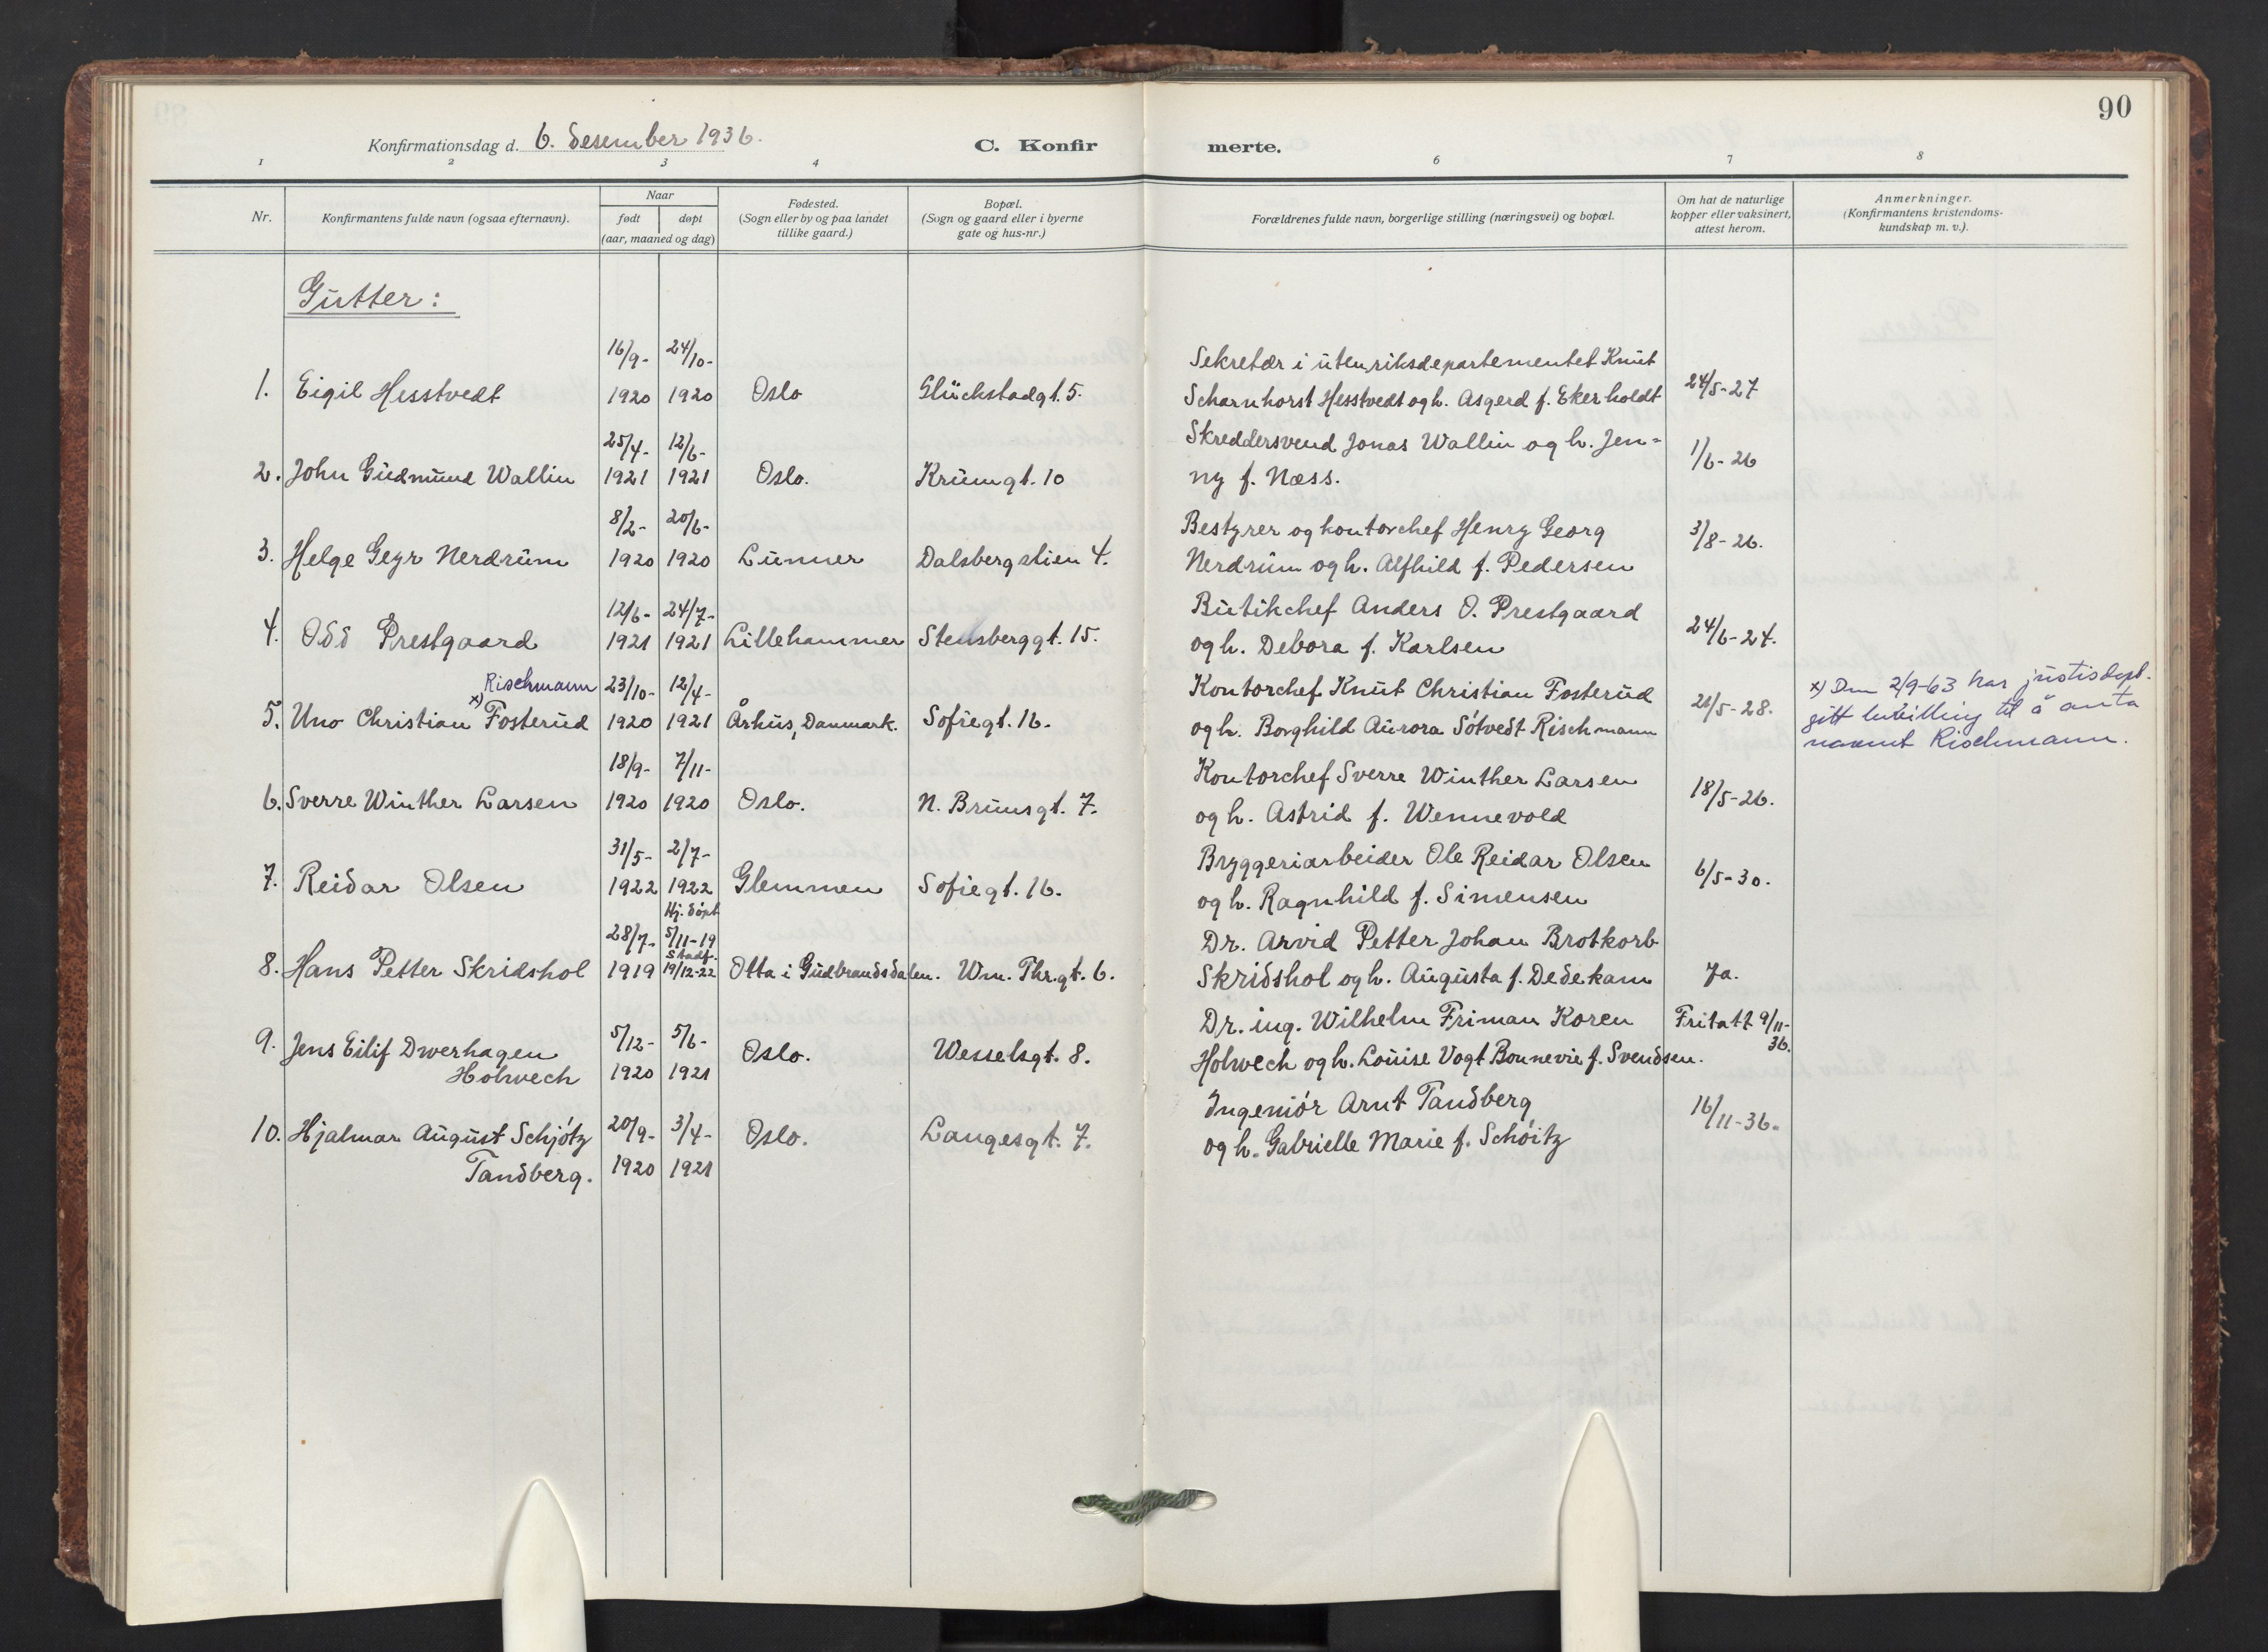 90
Konfirmationsdag d. 6. desember 1936.
C. Konfirmerte.
1 2 3 4 6 7 8
Nr.
Konfirmantens fulde navn (ogsaa efternavn).
Naar
født døpt
(aar, maaned og dag)
Fødested.
(Sogn eller by og paa landet
tillike gaard.)
Bopæl.
(Sogn og gaard eller i byerne
gate og hus-nr.)
Forældrenes fulde navn, borgerlige stilling (næringsvei) og bopæl.
Om hat de naturlige
kopper eller vaksinert,
attest herom.
Anmerkninger.
(Konfirmantens kristendoms-
kundskap m. v.).
Gutter:
16/9- 24/10- Sekretær i utenriksdepartementet Knut
1. Eigil Hesstvedt 1920 1920 Oslo Glückstadgt. 5. Scharnhorst Hesstvedt og h. Asgerd f. Ekerholdt 24/5-27
25/4- 12/6- Skreddersvend Jonas Wallin og h. Jen=
2. John Gudmund Wallin 1921 1921 Oslo. Krumgt. 10 ny f. Næss. 1/6-26
8/2- 20/6- Bestyrer og kontorchef Henry Georg
3. Helge Geyr Nerdrum 1920 1920 Lunner Dalsbergstien 4. Nerdrum og h. Alfhild f. Pedersen 3/8-26.
12/6- 24/7- Butikchef Anders O. Prestgaard
4. Odd Prestgaard 1921 1921 Lillehammer Stensberggt. 15. og h. Debora f. Karlsen 24/6-24.
Rischmann 23/10- 12/4- Kontorchef Knut Christian Fosterud
5. Uno Christian x) Fosterud 1920 1921 Århus, Danmark. Sofiegt. 16. og h. Borghild Aurora Sótvedt Rischmann 21/5-28.
x) Den 2/9-63 har justisdept.
gitt bevilling til å anta
navnet Rischmann.
18/9- 7/11- Kontorchef Sverre Winther Larsen
6. Sverre Winther Larsen 1920 1920 Oslo. N. Brunsgt. 7. og h. Astrid f. Wennevold 18/5-26.
31/5- 2/7- Bryggeriarbeider Ole Reidar Olsen
7. Reidar Olsen 1922 1922 Glemmen Sofiegt. 16. og h. Ragnhild f. Simensen 6/5-30.
Hj. dópt
28/7- 5/11-19 Dr. Arvid Petter Johan Brotkorb
Stadf.
8. Hans Petter Skridshol 1919 19/12-22 Otta i Gudbrandsdalen. Wm. Thr.gt. 6. Skridshol og h. Augusta f. Dedekam Ja.
5/12- 5/6- Dr. ing. Wilhelm Friman Koren Fritatt 9/11-36.
9. Jens Eilif Dwerhagen Oslo. Wesselsgt. 8. Holwech og h. Louise Vogt Bonnevie f. Svendsen.
Holwech 1920 1921
Ingeniór Arnt Tandberg 16/11-36.
10. Hjalmar August Schjótz 20/9- 3/4- Oslo. Langesgt. 7. og h. Gabrielle Marie f. Schóitz
Tandberg. 1920 1921